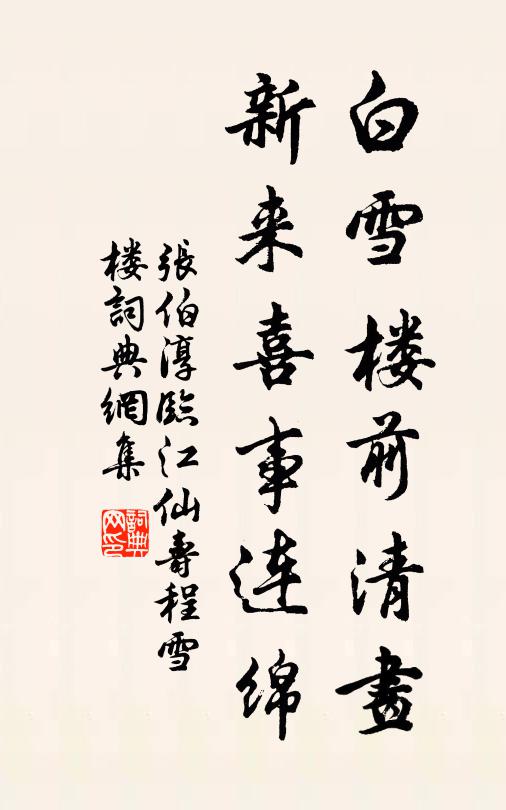 白雪楼前清晝
新来喜事连绵
張伯淳臨江仙壽程雪
楼詞典網集
詞典
网印